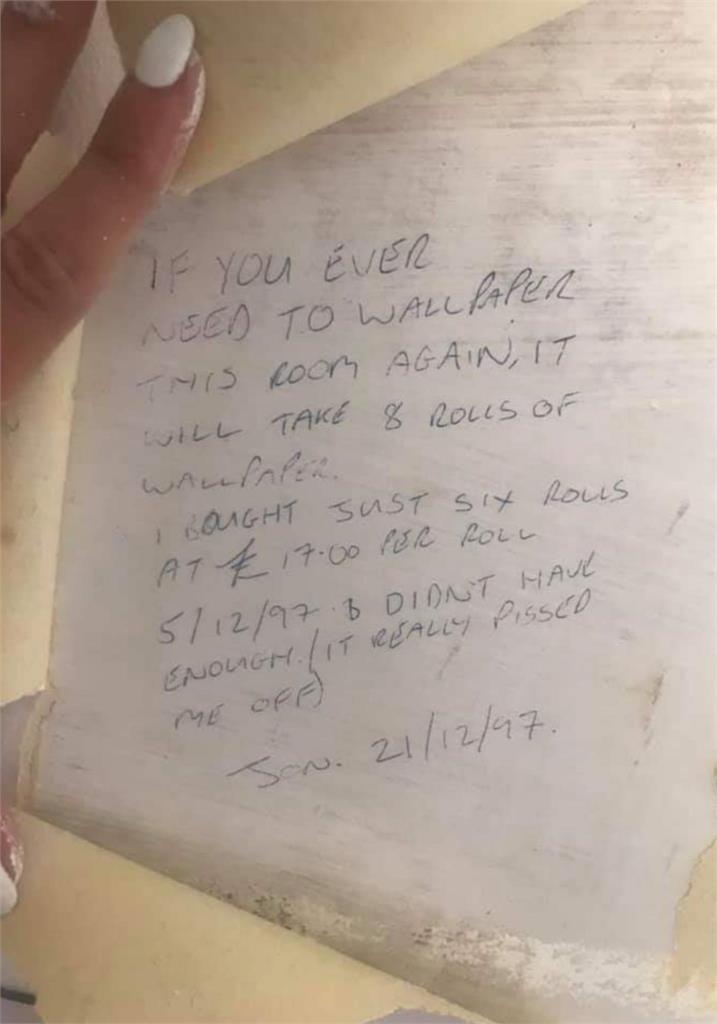 IF YOU EVER
NEED TO WALLPAPER
THIS ROOM AGAIN, IT
WILL TAKE 8 ROLLS OF
WALLPAPER.
I BOUGHT JUST SIX ROLLS
AT £17.00 PER ROLL
5/12/97 & DIDN'T HAVE
ENOUGH. (IT REALLY PISSED
ME OFF)
JON. 21/12/97.